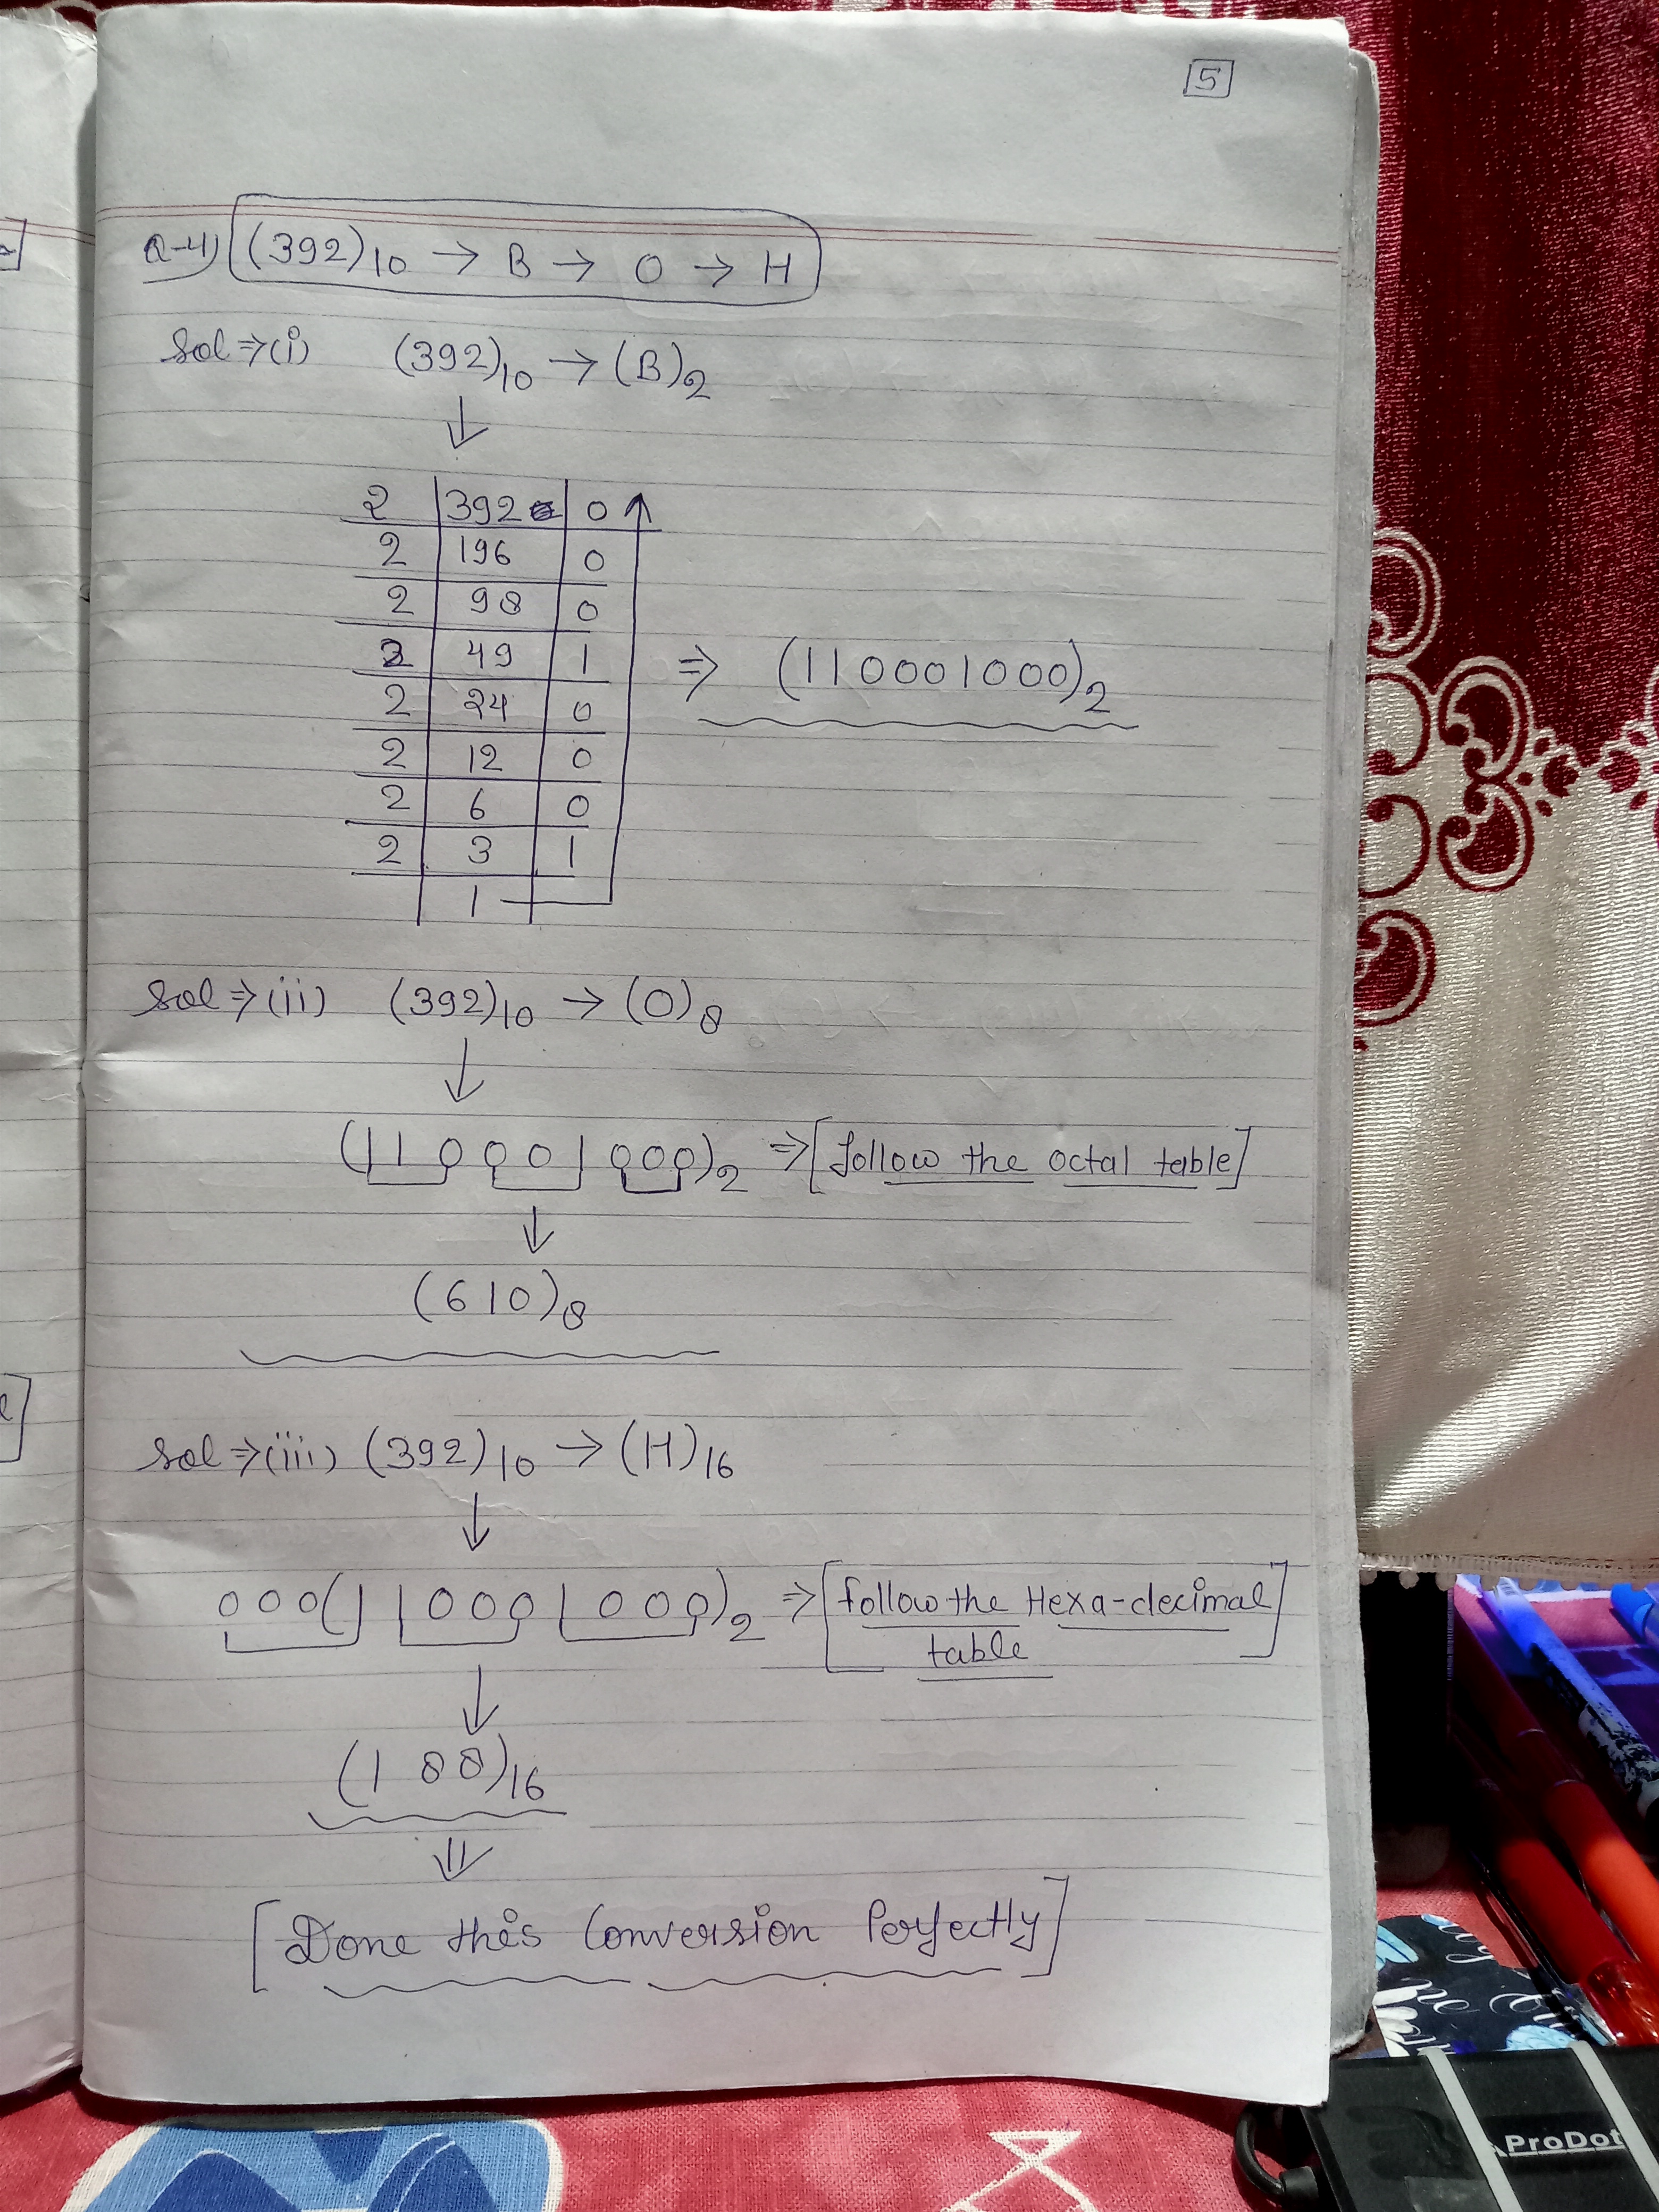 5
Q-4) (392)10 → B → O → H
Sol ⇒ (i) (392)10 → (B)2
↓
2 | 392 | 0
2 | 196 | 0
2 | 98 | 0
2 | 49 | 1
2 | 24 | 0
2 | 12 | 0
2 | 6 | 0
2 | 3 | 1
1
⇒ (110001000)2
Sol ⇒ (ii) (392)10 → (O)8
↓
(110 001 000)2 ⇒ [follow the octal table]
↓
(610)8
Sol ⇒ (iii) (392)10 → (H)16
↓
000(1 1000 1000)2 ⇒ [follow the Hexa-decimal
table]
↓
(188)16
⇓
[Done this Conversion Perfectly]
ProDot